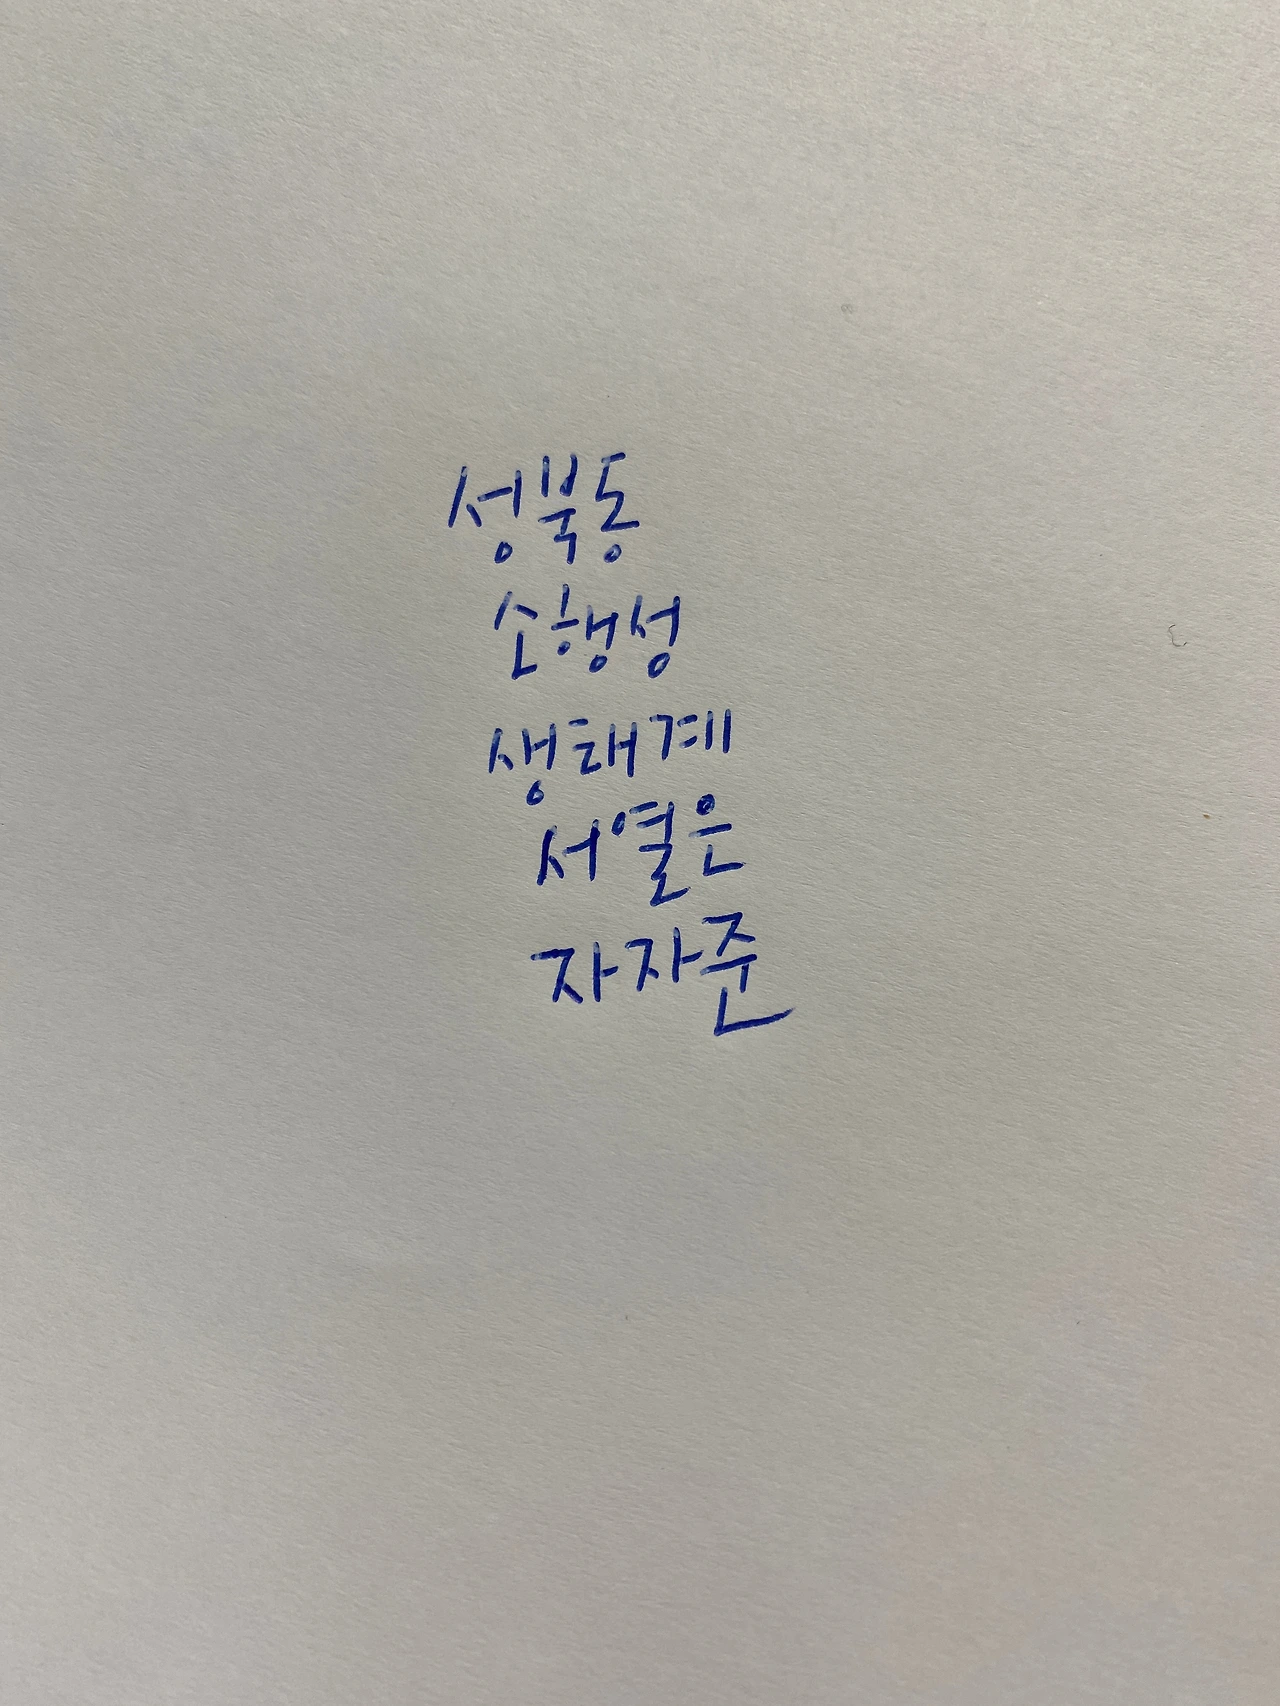 성북동
소행성
생태계
서열은
자자준